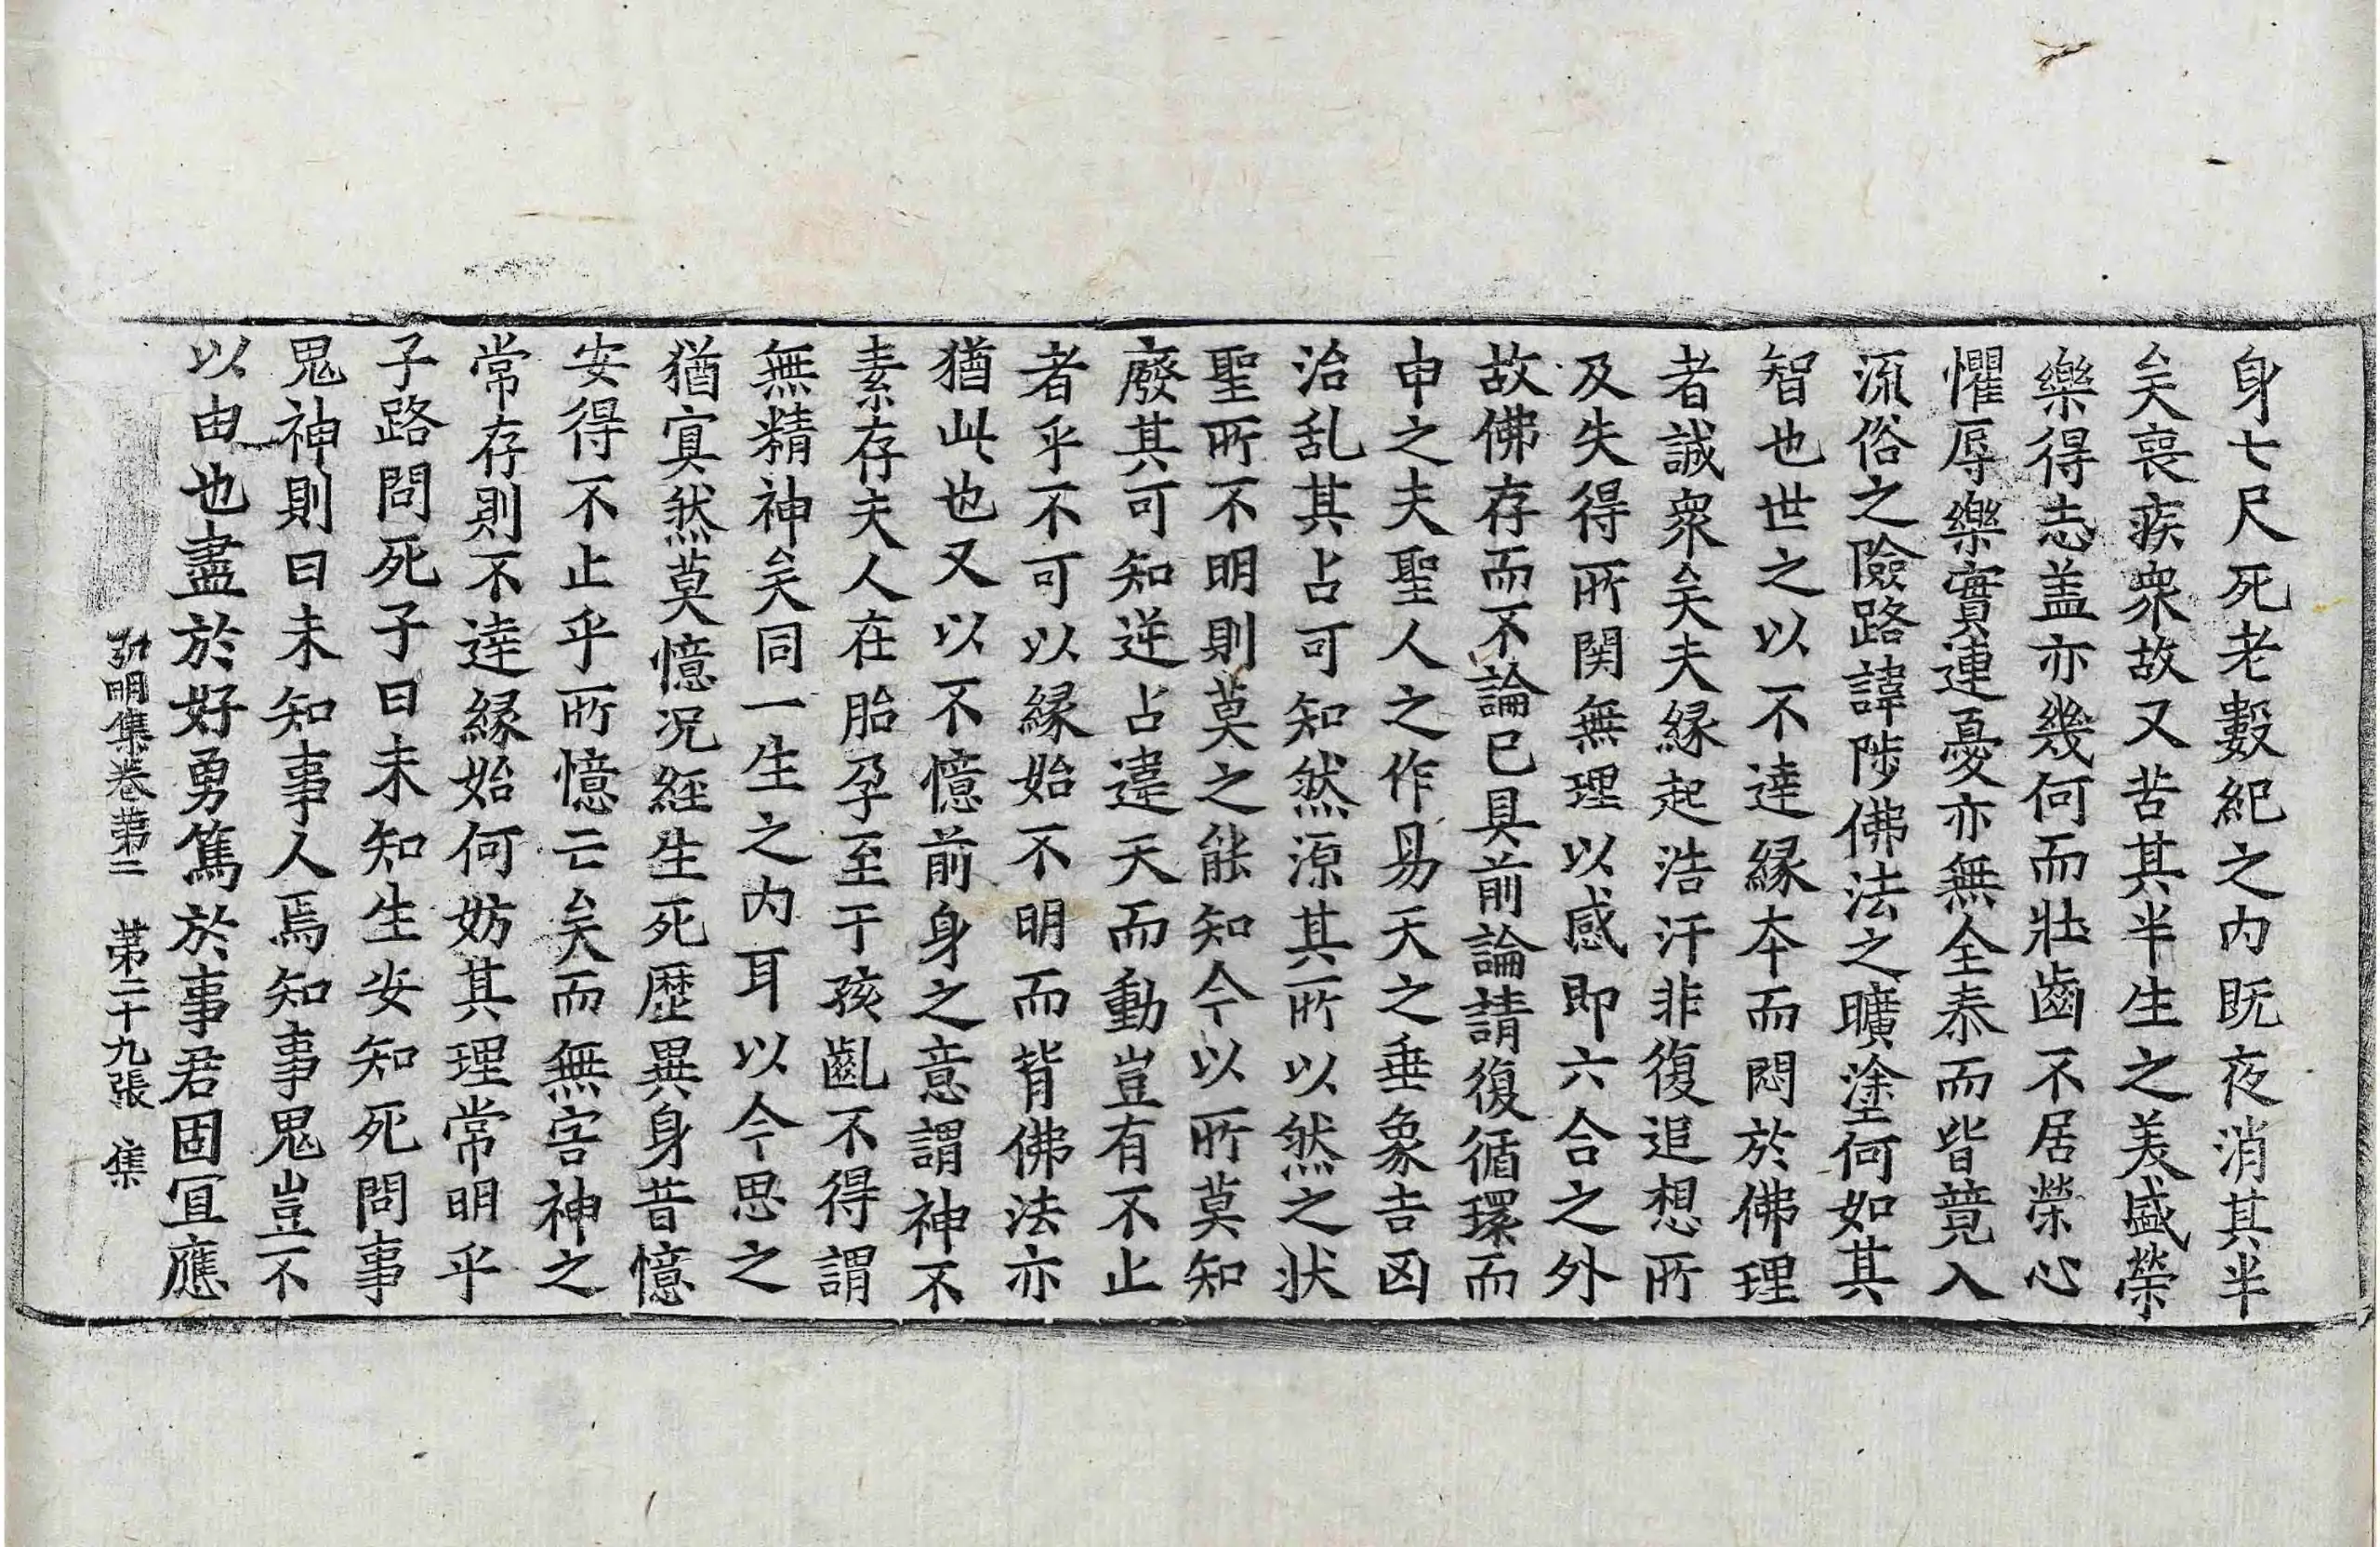 身七尺死老數紀之内既夜消其半
矣喪疾衆故又苦其半生之美盛榮
樂得志盖亦幾何而壯齒不居榮心
懼辱樂實連憂亦無全泰而皆競入
流俗之險路諱陟佛法之曠塗何如其
智也世之以不達緣本而悶於佛理
者誠衆矣夫緣起浩汗非復追想所
及失得所関無理以感即六合之外
故佛存而不論已具前論請復循環而
申之夫聖人之作易天之垂象吉凶
治乱其占可知然源其所以然之状
聖所不明則莫之能知今以所莫知
廢其可知逆占違天而動豈有不止
者乎不可以緣始不明而背佛法亦
猶此也又以不憶前身之意謂神不
素存夫人在胎孕至于孩齓不得謂
無精神矣同一生之内耳以今思之
猶寘然莫憶况經生死歷異身昔憶
安得不止乎所憶亡矣而無害神之
常存則不達緣始何妨其理常明乎
子路問死子曰未知生安知死問事
鬼神則曰未知事人焉知事鬼豈不
以由也盡於好勇篤於事君固冝應
弘明集卷第二 第二十九張 集